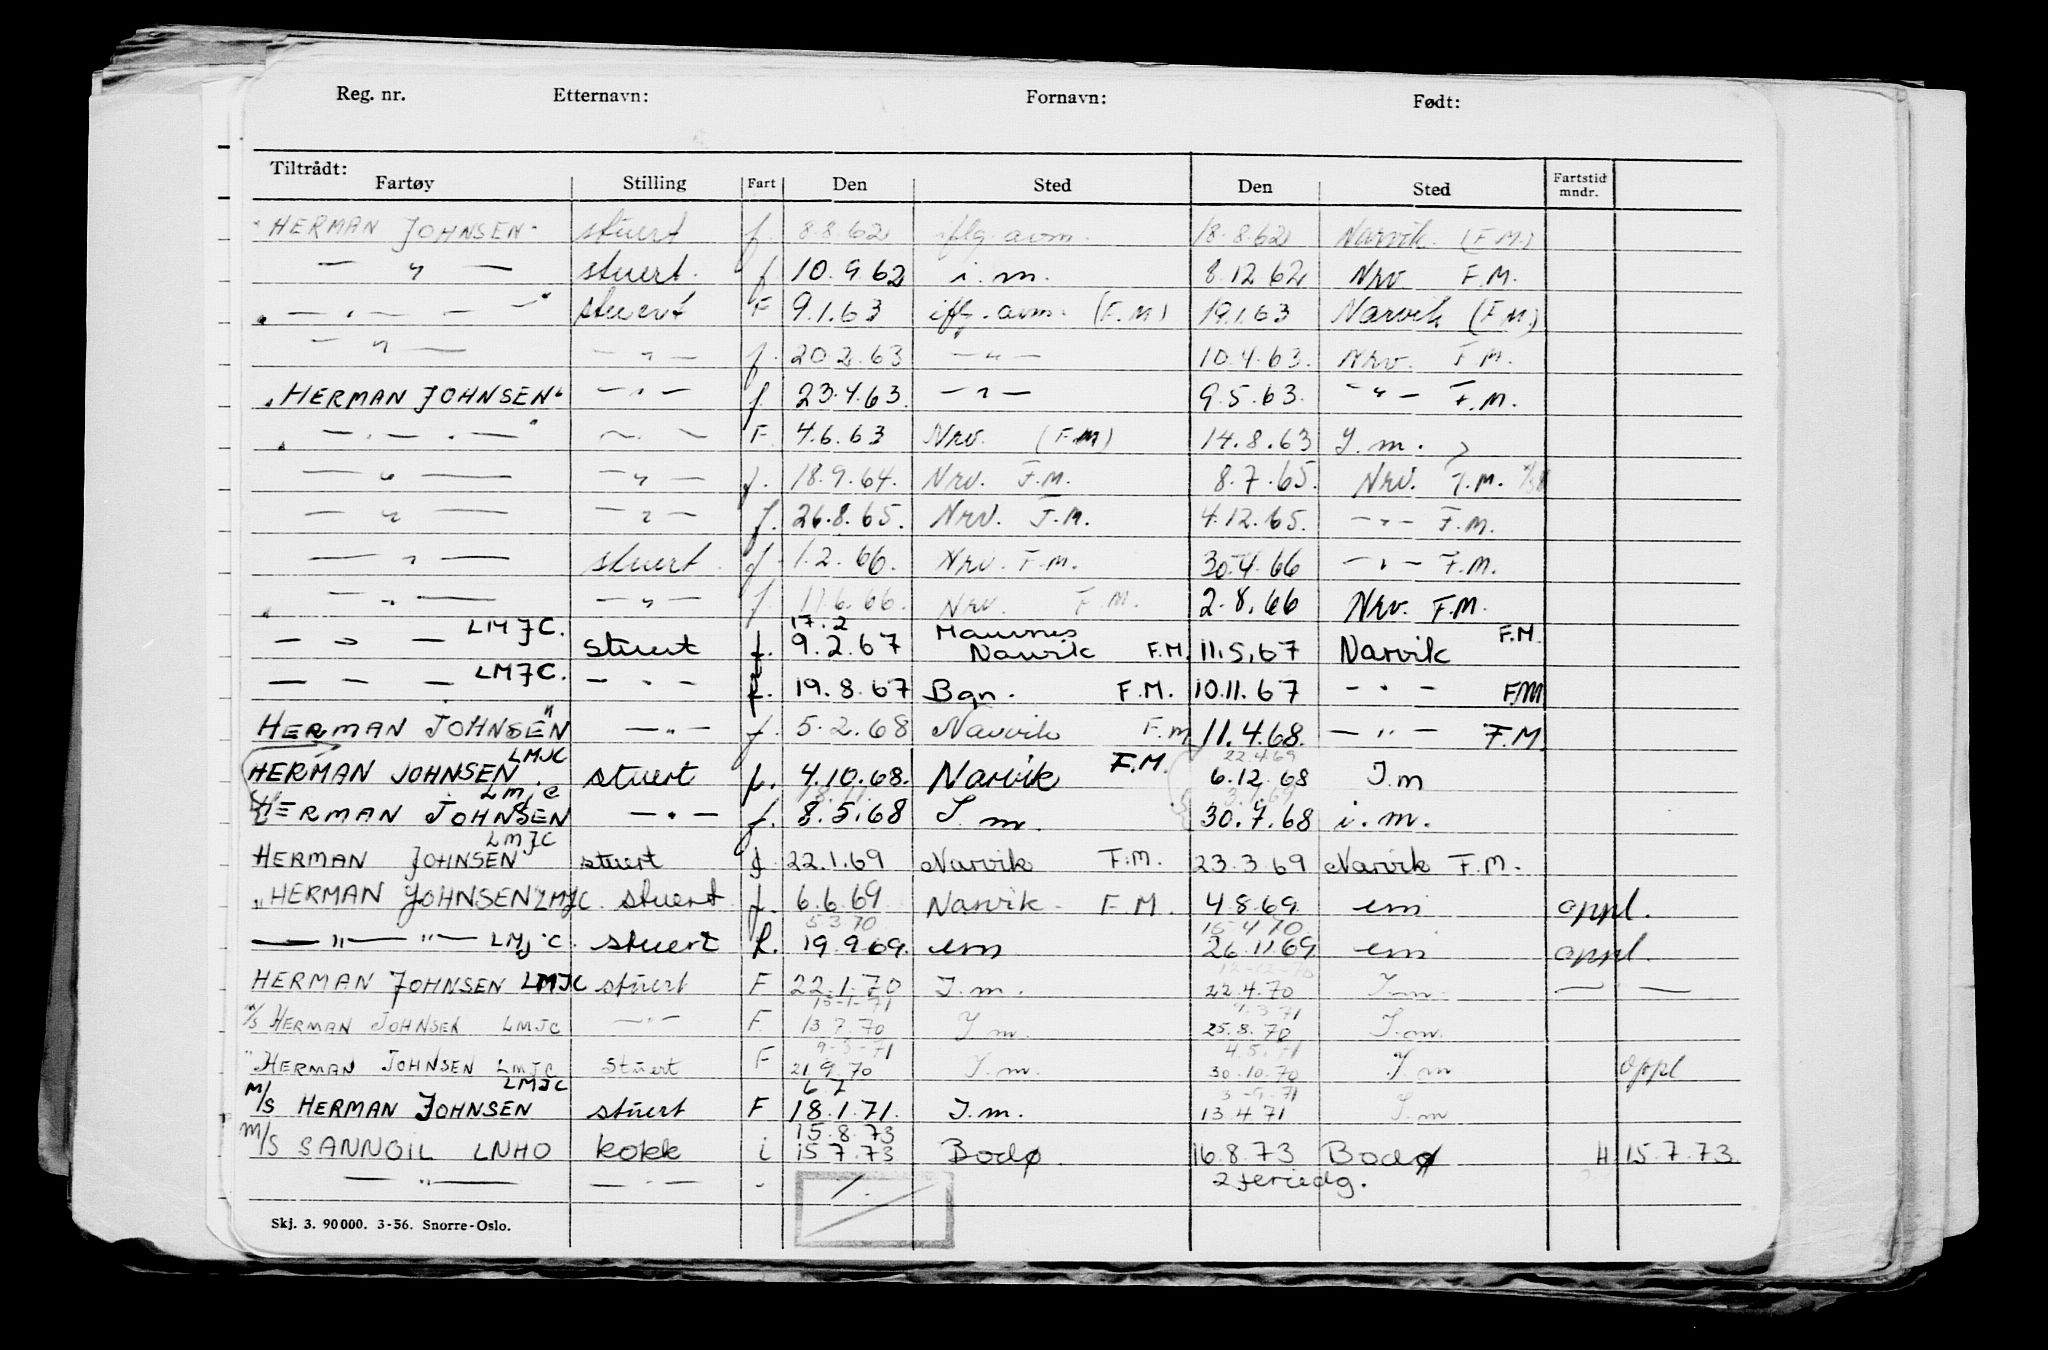 Reg. nr. Etternavn: Fornavn: Født:
Tiltrådt:
Fartøy Stilling Fart Den Sted Den Sted Fartstid mndr.
"HERMAN JOHNSEN" stuert f. 8.8.62 iflg. avm. 18.8.62 Narvik (F.M.)
— " — stuert. f 10.9.62 i.m. 8.12.62 Nrv F.M.
" — " — — " stuert F 9.1.63 iflg. avm. (F.M) 19.1.63 Narvik (F.M.)
— " — — " — f. 20.2.63 — " — 10.4.63. Nrv. F.M.
"HERMAN JOHNSEN" — " — f. 23.4.63. — " — 9.5.63. — " — F.M.
" — " — " — " — " — F. 4.6.63 Nrv. (F.M) 14.8.63 I.m.
— " — — " — f. 18.9.64. Nrv. F.M. 8.7.65. Nrv. F.M.
— " — — " — f. 26.8.65. Nrv. F.M. 4.12.65. — " — F.M.
— " — stuert. f. 1.2.66. Nrv. F.M. 30.4.66 — " — F.M.
" — " — — " — f. 11.6.66. Nrv. F.M. 2.8.66 Nrv. F.M.
LMJC. 17.2 F.M.
— " — stuert f. 9.2.67 Narvik F.M. 11.5.67 Narvik
LMJC.
— — — — " — f. 19.8.67 Bgn. F.M. 10.11.67 — " — F.M
HERMAN JOHNSEN" — " — f. 5.2.68 Narvik F.m 11.4.68. — " — F.M.
LMJC 22.4.69
HERMAN JOHNSEN. stuert f. 4.10.68. Narvik F.M. 6.12.68 I.m
LMJC
HERMAN JOHNSEN — " — f. 8.5.68 I.m. 30.7.68 i.m.
LMJC
HERMAN JOHNSEN stuert f. 22.1.69 Narvik F.M. 23.3.69 Narvik F.M.
"HERMAN JOHNSEN" LMJC. stuert f. 6.6.69 Narvik. F.M. 4.8.69 em oppl.
5.3.70 16-4-70
— " — " — LMJC. stuert f. 19.9.69. em 26.11.69 em oppl.
12-12-70
HERMAN JOHNSEN LMJC stuert F 22.1.70 I.m. 22.4.70 I.m. — " —
15-1-71
M/S HERMAN JOHNSEN LMJC — " — F. 13.7.70 I.m. 25.8.70 I.m.
9-3-71 4.5.71
"HERMAN JOHNSEN LMJC stuert F 21.9.70 I.m. 30.10.70 I.m oppl
LMJC 6 7 3-9-71
M/S HERMAN JOHNSEN stuert F 18.1.71. I.m. 13.4.71 I.m
15.8.73
M/S SANNOIL LNHO kokk i 15.7.73 Bodø. 16.8.73 Bodø H 15.7.73.
— " — — " — - 1/. 2 feriedg.
Skj. 3. 90 000. 3-56. Snorre-Oslo.